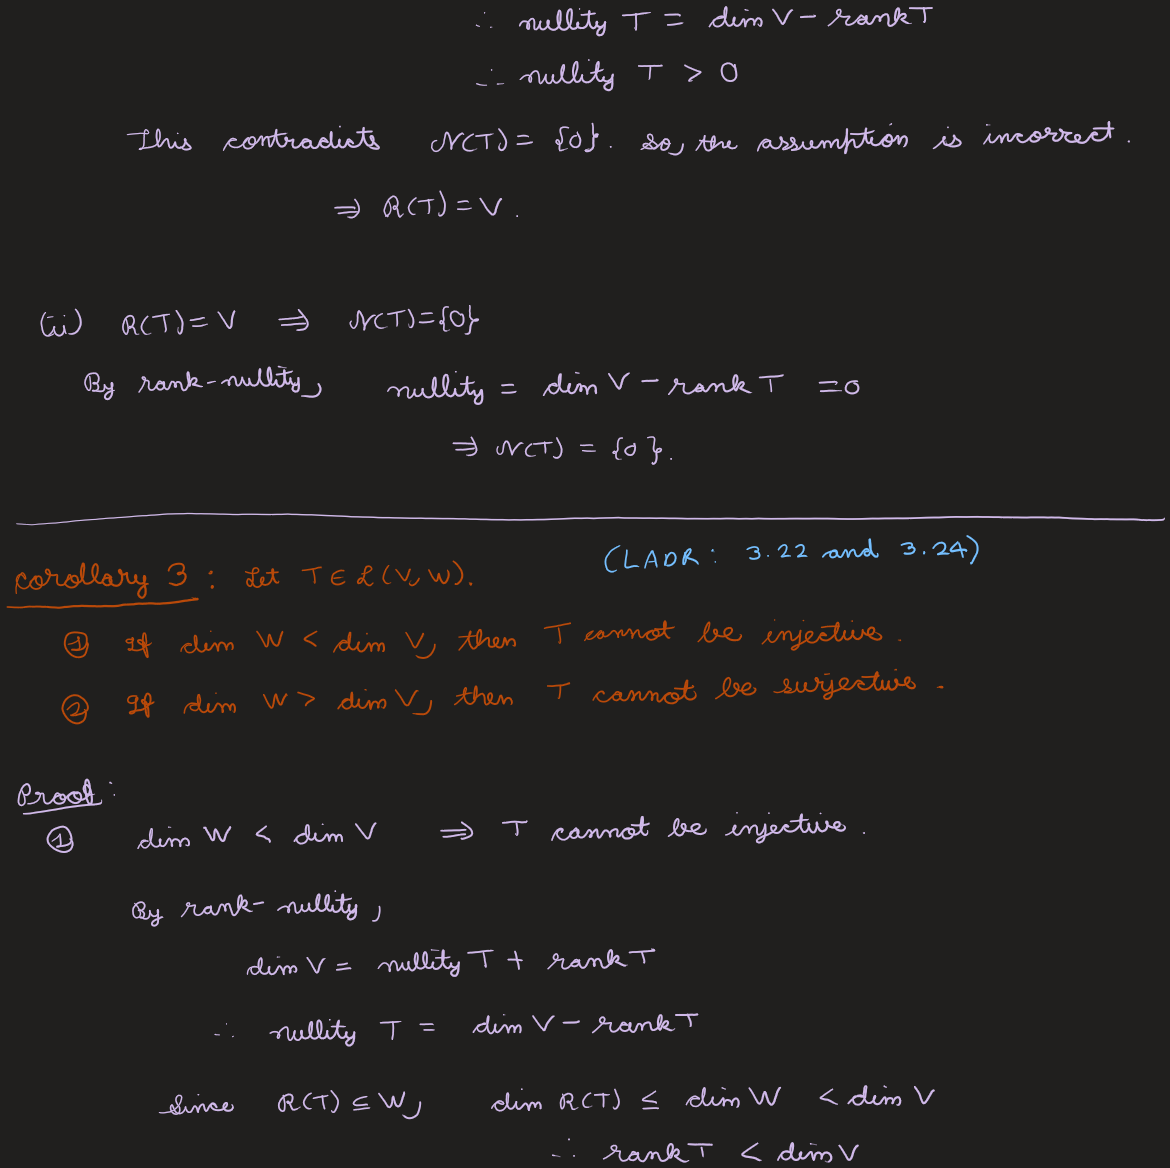 ∴ nullity T = dim V − rank T
∴ nullity T > 0
This contradicts N(T) = {0}. So, the assumption is incorrect.
⇒ R(T) = V.
(ii) R(T) = V ⇒ N(T) = {0}
By rank-nullity, nullity = dim V − rank T = 0
⇒ N(T) = {0}.
(LADR: 3.22 and 3.24)
Corollary 3: Let T ∈ L(V, W).
① If dim W < dim V, then T cannot be injective.
② If dim W > dim V, then T cannot be surjective.
Proof:
① dim W < dim V ⇒ T cannot be injective.
By rank-nullity,
dim V = nullity T + rank T
∴ nullity T = dim V − rank T
Since R(T) ⊆ W, dim R(T) ≤ dim W < dim V
∴ rank T < dim V